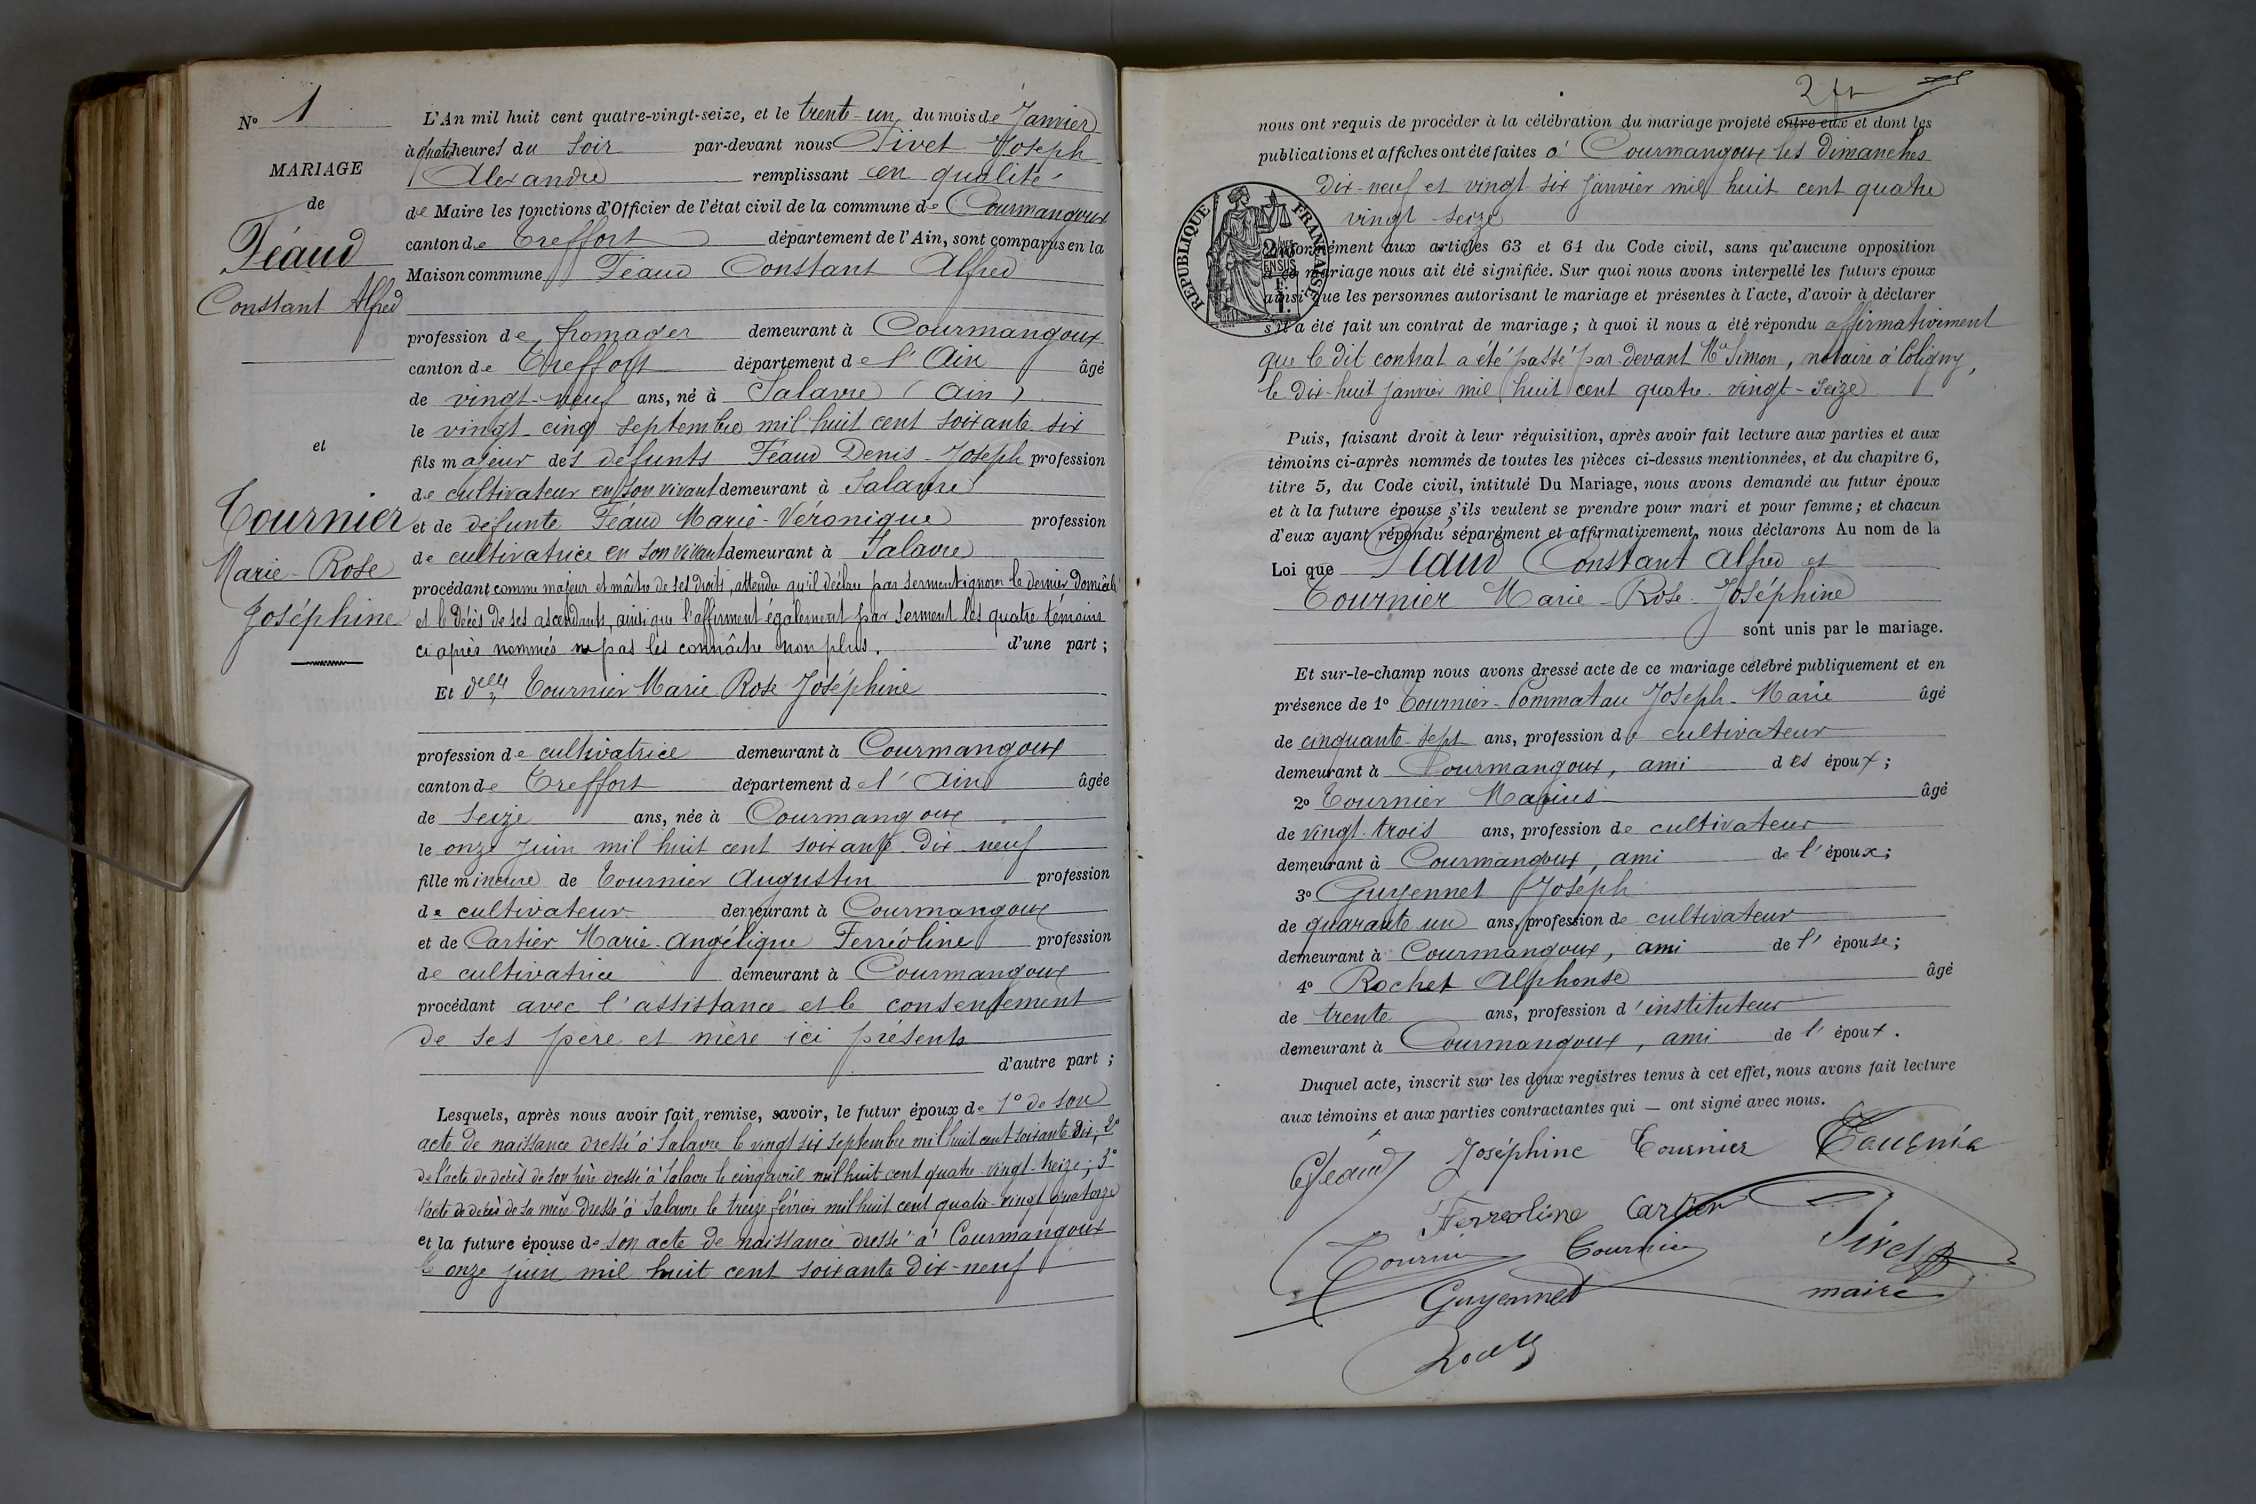 N° 1
MARIAGE
de
Féaud
Constant Alfred
et
Tournier
Marie-Rose
Joséphine
L'An mil huit cent quatre-vingt-seize, et le trente-un du mois de Janvier
à quatre heures du soir par-devant nous Sivet Joseph
Alexandre remplissant en qualité
de Maire les fonctions d'Officier de l'état civil de la commune de Courmangoux
canton de Treffort département de l'Ain, sont comparus en la
Maison commune Féaud Constant Alfred
profession de fromager demeurant à Courmangoux
canton de Treffort département de l'Ain âgé
de vingt-neuf ans, né à Salavre (Ain)
le vingt-cinq septembre mil huit cent soixante six
fils majeur des défunts Féaud Denis-Joseph profession
de cultivateur en son vivant demeurant à Salavre
et de défunte Féaud Marie-Véronique profession
de cultivatrice en son vivant demeurant à Salavre
procédant comme majeur et maître de ses droits, attendu qu'il déclare par serment ignorer le dernier domicile
et le décès de ses ascendants, ainsi que l'affirment également par serment les quatre témoins
ci après nommés ne pas les connaître non plus. d'une part ;
Et delle Tournier Marie Rose Joséphine
profession de cultivatrice demeurant à Courmangoux
canton de Treffort département de l'Ain âgée
de seize ans, née à Courmangoux
le onze juin mil huit cent soixante-dix-neuf
fille mineure de Tournier Augustin profession
de cultivateur demeurant à Courmangoux
et de Cartier Marie-Angélique Ferréoline profession
de cultivatrice demeurant à Courmangoux
procédant avec l'assistance et le consentement
de ses père et mère ici présents
d'autre part ;
Lesquels, après nous avoir fait remise, savoir, le futur époux de 1° de son
acte de naissance dressé à Salavre le vingt six septembre mil huit cent soixante six, 2°
de l'acte de décès de son père dressé à Salavre le cinq avril mil huit cent quatre-vingt-treize ; 3°
l'acte de décès de sa mère dressé à Salavre le treize février mil huit cent quatre-vingt quatorze
et la future épouse de son acte de naissance dressé à Courmangoux
le onze juin mil huit cent soixante dix-neuf
2 fr
nous ont requis de procéder à la célébration du mariage projeté entre eux et dont les
publications et affiches ont été faites à Courmangoux les dimanches
dix-neuf et vingt-six janvier mil huit cent quatre
vingt-seize
RÉPUBLIQUE FRANÇAISE
2/10 EN SUS
conformément aux articles 63 et 64 du Code civil, sans qu'aucune opposition
à ce mariage nous ait été signifiée. Sur quoi nous avons interpellé les futurs époux
ainsi que les personnes autorisant le mariage et présentes à l'acte, d'avoir à déclarer
s'il a été fait un contrat de mariage ; à quoi il nous a été répondu affirmativement
que le dit contrat a été passé par-devant Me Simon, notaire à Coligny,
le dix-huit janvier mil huit cent quatre-vingt-seize
Puis, faisant droit à leur réquisition, après avoir fait lecture aux parties et aux
témoins ci-après nommés de toutes les pièces ci-dessus mentionnées, et du chapitre 6,
titre 5, du Code civil, intitulé Du Mariage, nous avons demandé au futur époux
et à la future épouse s'ils veulent se prendre pour mari et pour femme ; et chacun
d'eux ayant répondu séparément et affirmativement, nous déclarons Au nom de la
Loi que Féaud Constant Alfred et
Tournier Marie-Rose-Joséphine
sont unis par le mariage.
Et sur-le-champ nous avons dressé acte de ce mariage célébré publiquement et en
présence de 1° Tournier-Pommatau Joseph-Marie âgé
de cinquante-sept ans, profession de cultivateur
demeurant à Courmangoux, ami des époux ;
2° Tournier Marius âgé
de vingt-trois ans, profession de cultivateur
demeurant à Courmangoux, ami de l'époux ;
3° Guyennet Joseph
de quarante un ans, profession de cultivateur
demeurant à Courmangoux, ami de l'épouse ;
4° Rochet Alphonse âgé
de trente ans, profession d'instituteur
demeurant à Courmangoux, ami de l'époux.
Duquel acte, inscrit sur les doux registres tenus à cet effet, nous avons fait lecture
aux témoins et aux parties contractantes qui — ont signé avec nous.
Féaud Joséphine Tournier Tournier
Ferreoline Cartier
Tournier Tournier Sivet
Guyennet maire